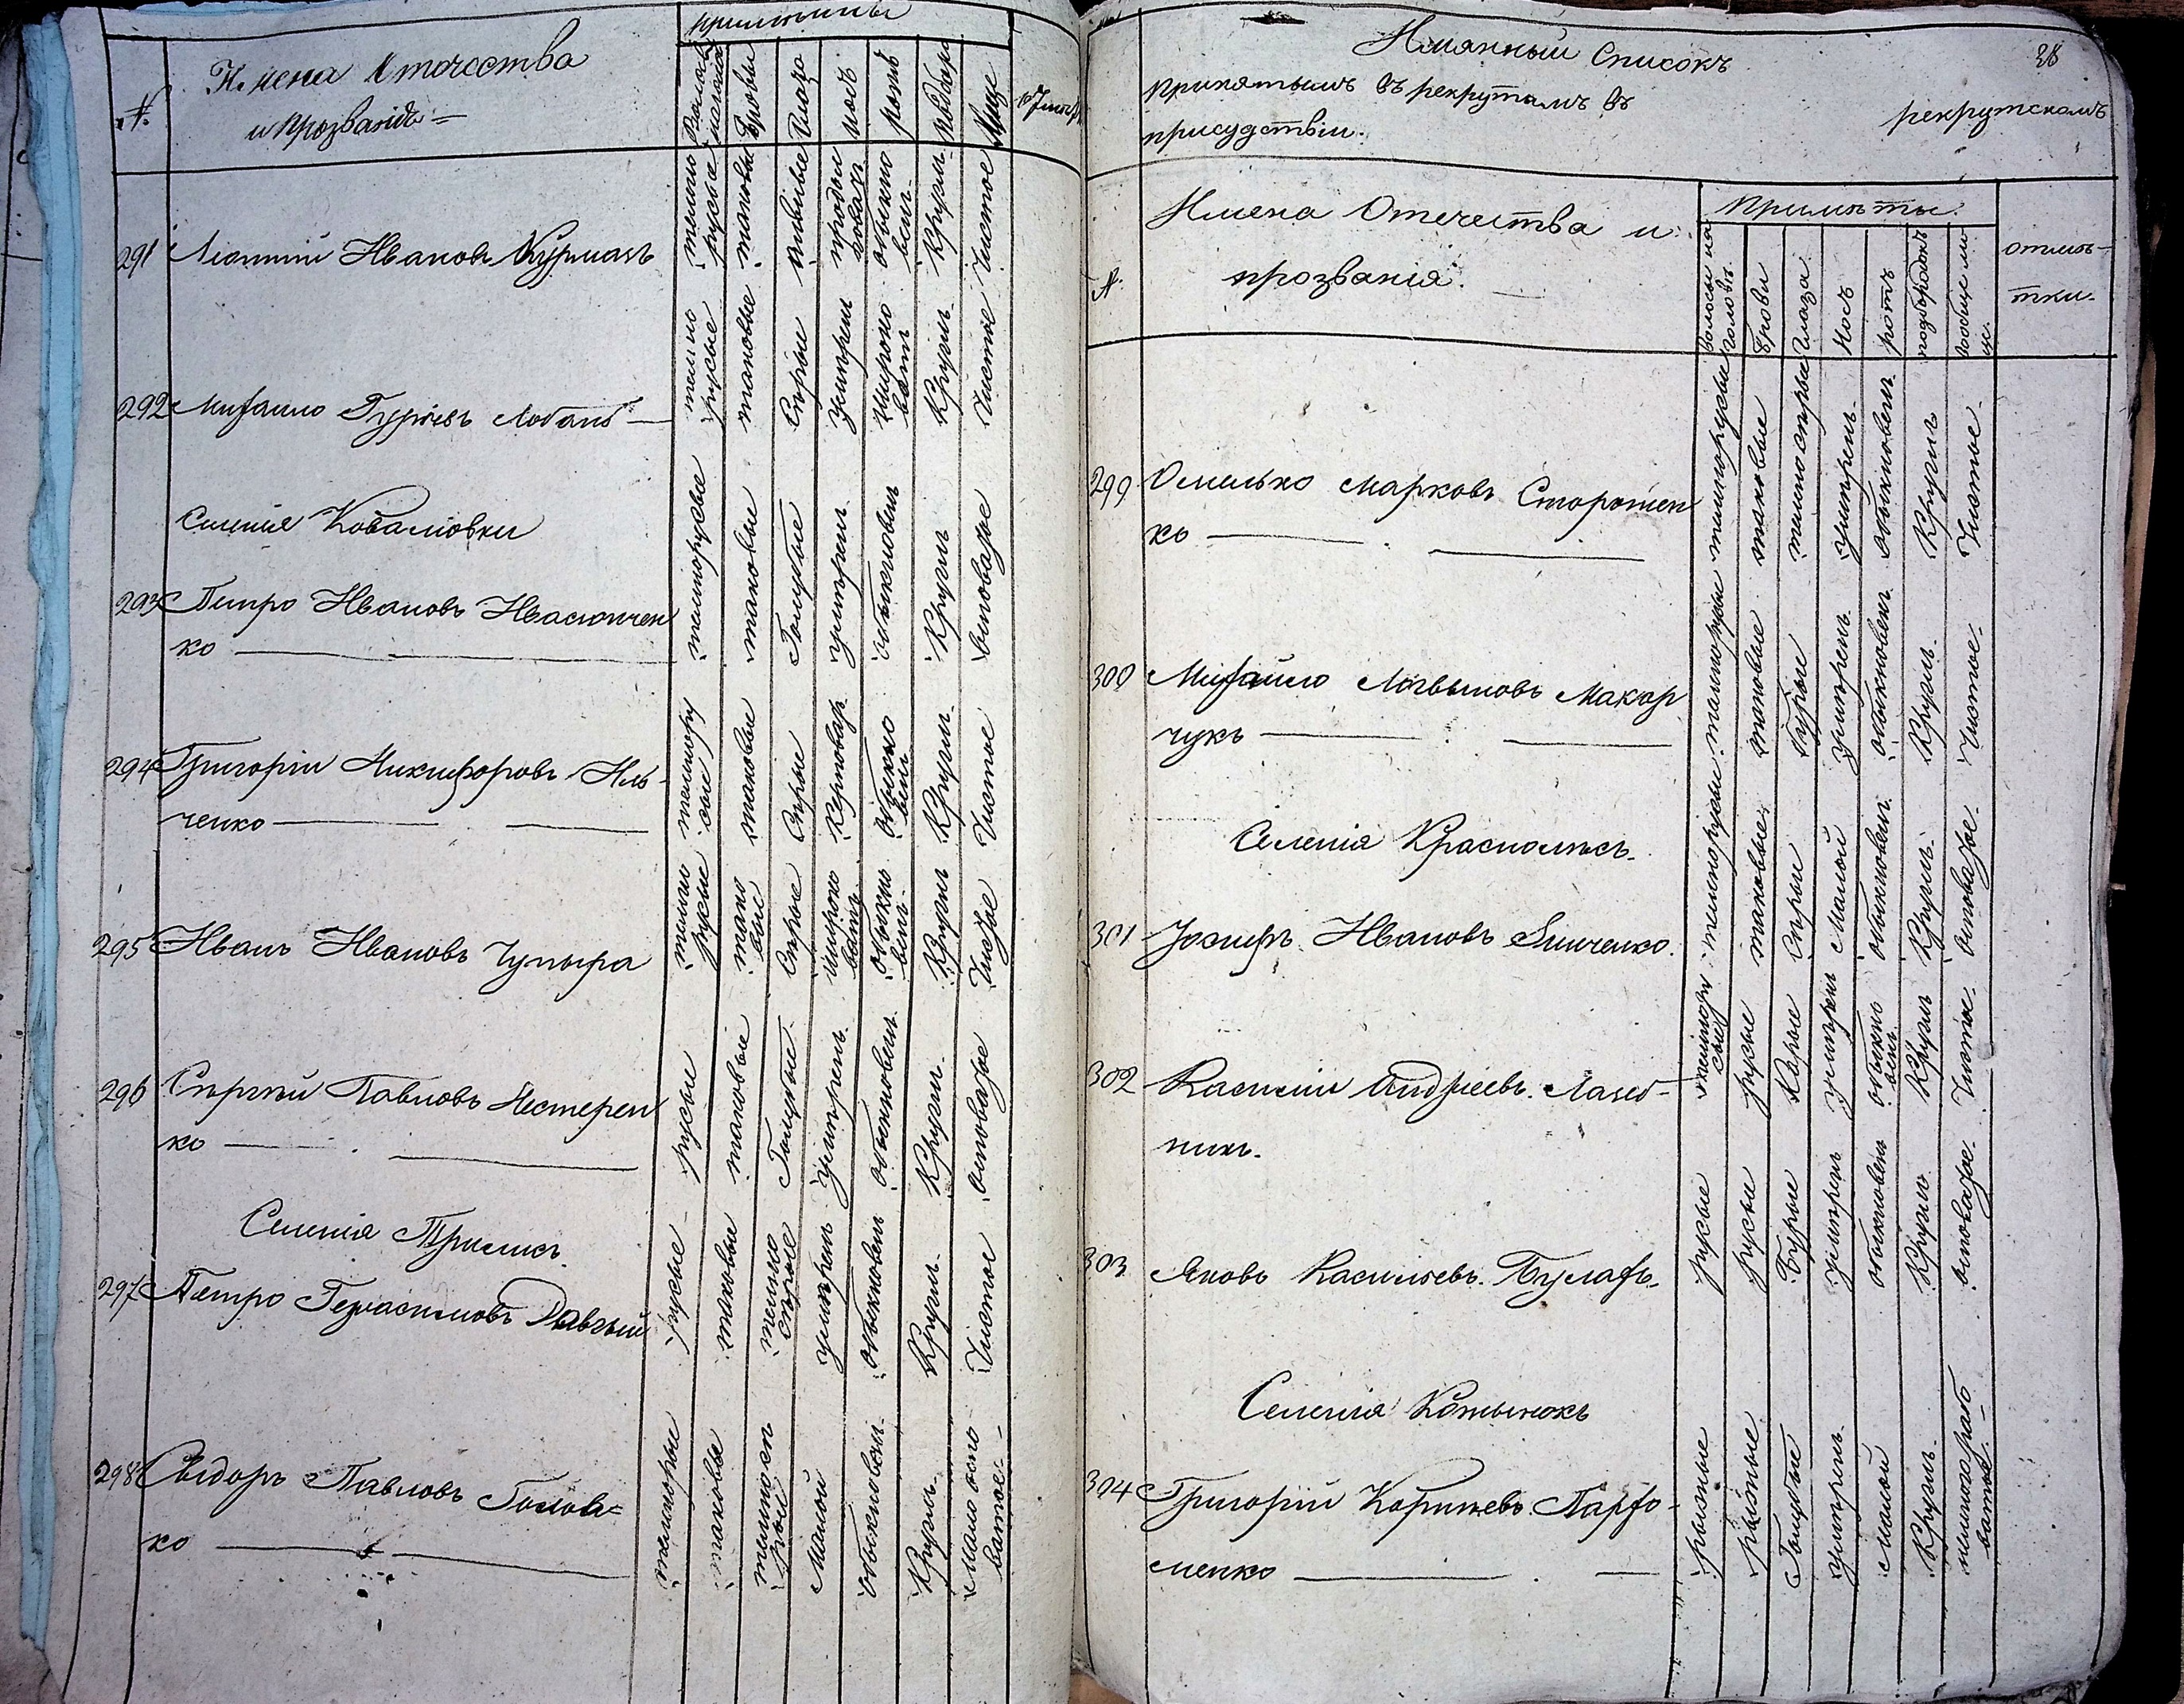 примѣты
№
Имена Отечества
и прозванія
Волоса на головѣ
Брови
Глаза
носъ
ротъ
подборо
Лице
291 Іванов Курмазъ
темно русые таковые обыкно вен. Кругл. Чистое
292 Михайло Гурьевъ Лобань
темно русые таковые Сѣрые умѣрен широко ват Кругл. Чистое
Селенія Коваліовки
293 Петро Ивановъ Ивасюнчен
ко
темнорусые таковые Голубые умѣрен. обыкновен Кругл осповатое
294 Григорій Никифоровъ Иль-
ченко
темнору сые таковые Сѣрые обыкно вен. Кругл. Чистое
295 Иванъ Ивановъ Чупыра
темно русые тако вые Сѣрые широко ват. обыкно вен. Кругл Чистое
296 Сергѣй Павловъ Нестерен
ко
русые таковые Голубые умѣрен. обыкновен. Кругл. осповатое
Селенія Трилисъ
297 Петро Герасимовъ
русые таковые темно сѣрые умѣрен. обыкновен Кругл. Чистое
298 Сидоръ Павловъ Голов=
ко
таковые темносѣ рые Малой обыкновен. Кругл. Мало оспо ватое
28
Имянный Списокъ
принятымъ въ рекрутамъ въ рекрутскомъ
присудствіи.
№
Имена Отечества и
прозванія.
Примѣты.
Волосы на головѣ.
Брови
Глаза
Носъ
ротъ
подбородокъ
Вообще ли це.
отмѣ-
тки.
299 Омелько Марковъ Сторожен
ко
темнорусые таковые темносѣрые умѣрен. обыкновен. Кругл Чистое.
300 Михайло Логвыновъ Макар
чукъ
темнорусые таковые бурые умѣрен. обыкновен. Кругл. Чистое.
Селенія Краснолѣсъ.
301 Іосифъ Ивановъ Зинченко.
темнорусые таковые Сѣрые Малой обыкновен. Кругл. осповатое.
302 Василій Андреевъ. Лазеб-
никъ.
темнору сые русые Карые умѣрен обыкно вен. Кругл Чистое.
303 Яковъ Васильевъ. Булахъ.
русые русые Бурые умѣрен обыкновен Кругл. осповатое.
Селенія Кожынокъ
304 Григорій Корнѣевъ Пархо-
менко
рыжые рыжые Голубые умѣрен. Малой Кругл. ватое